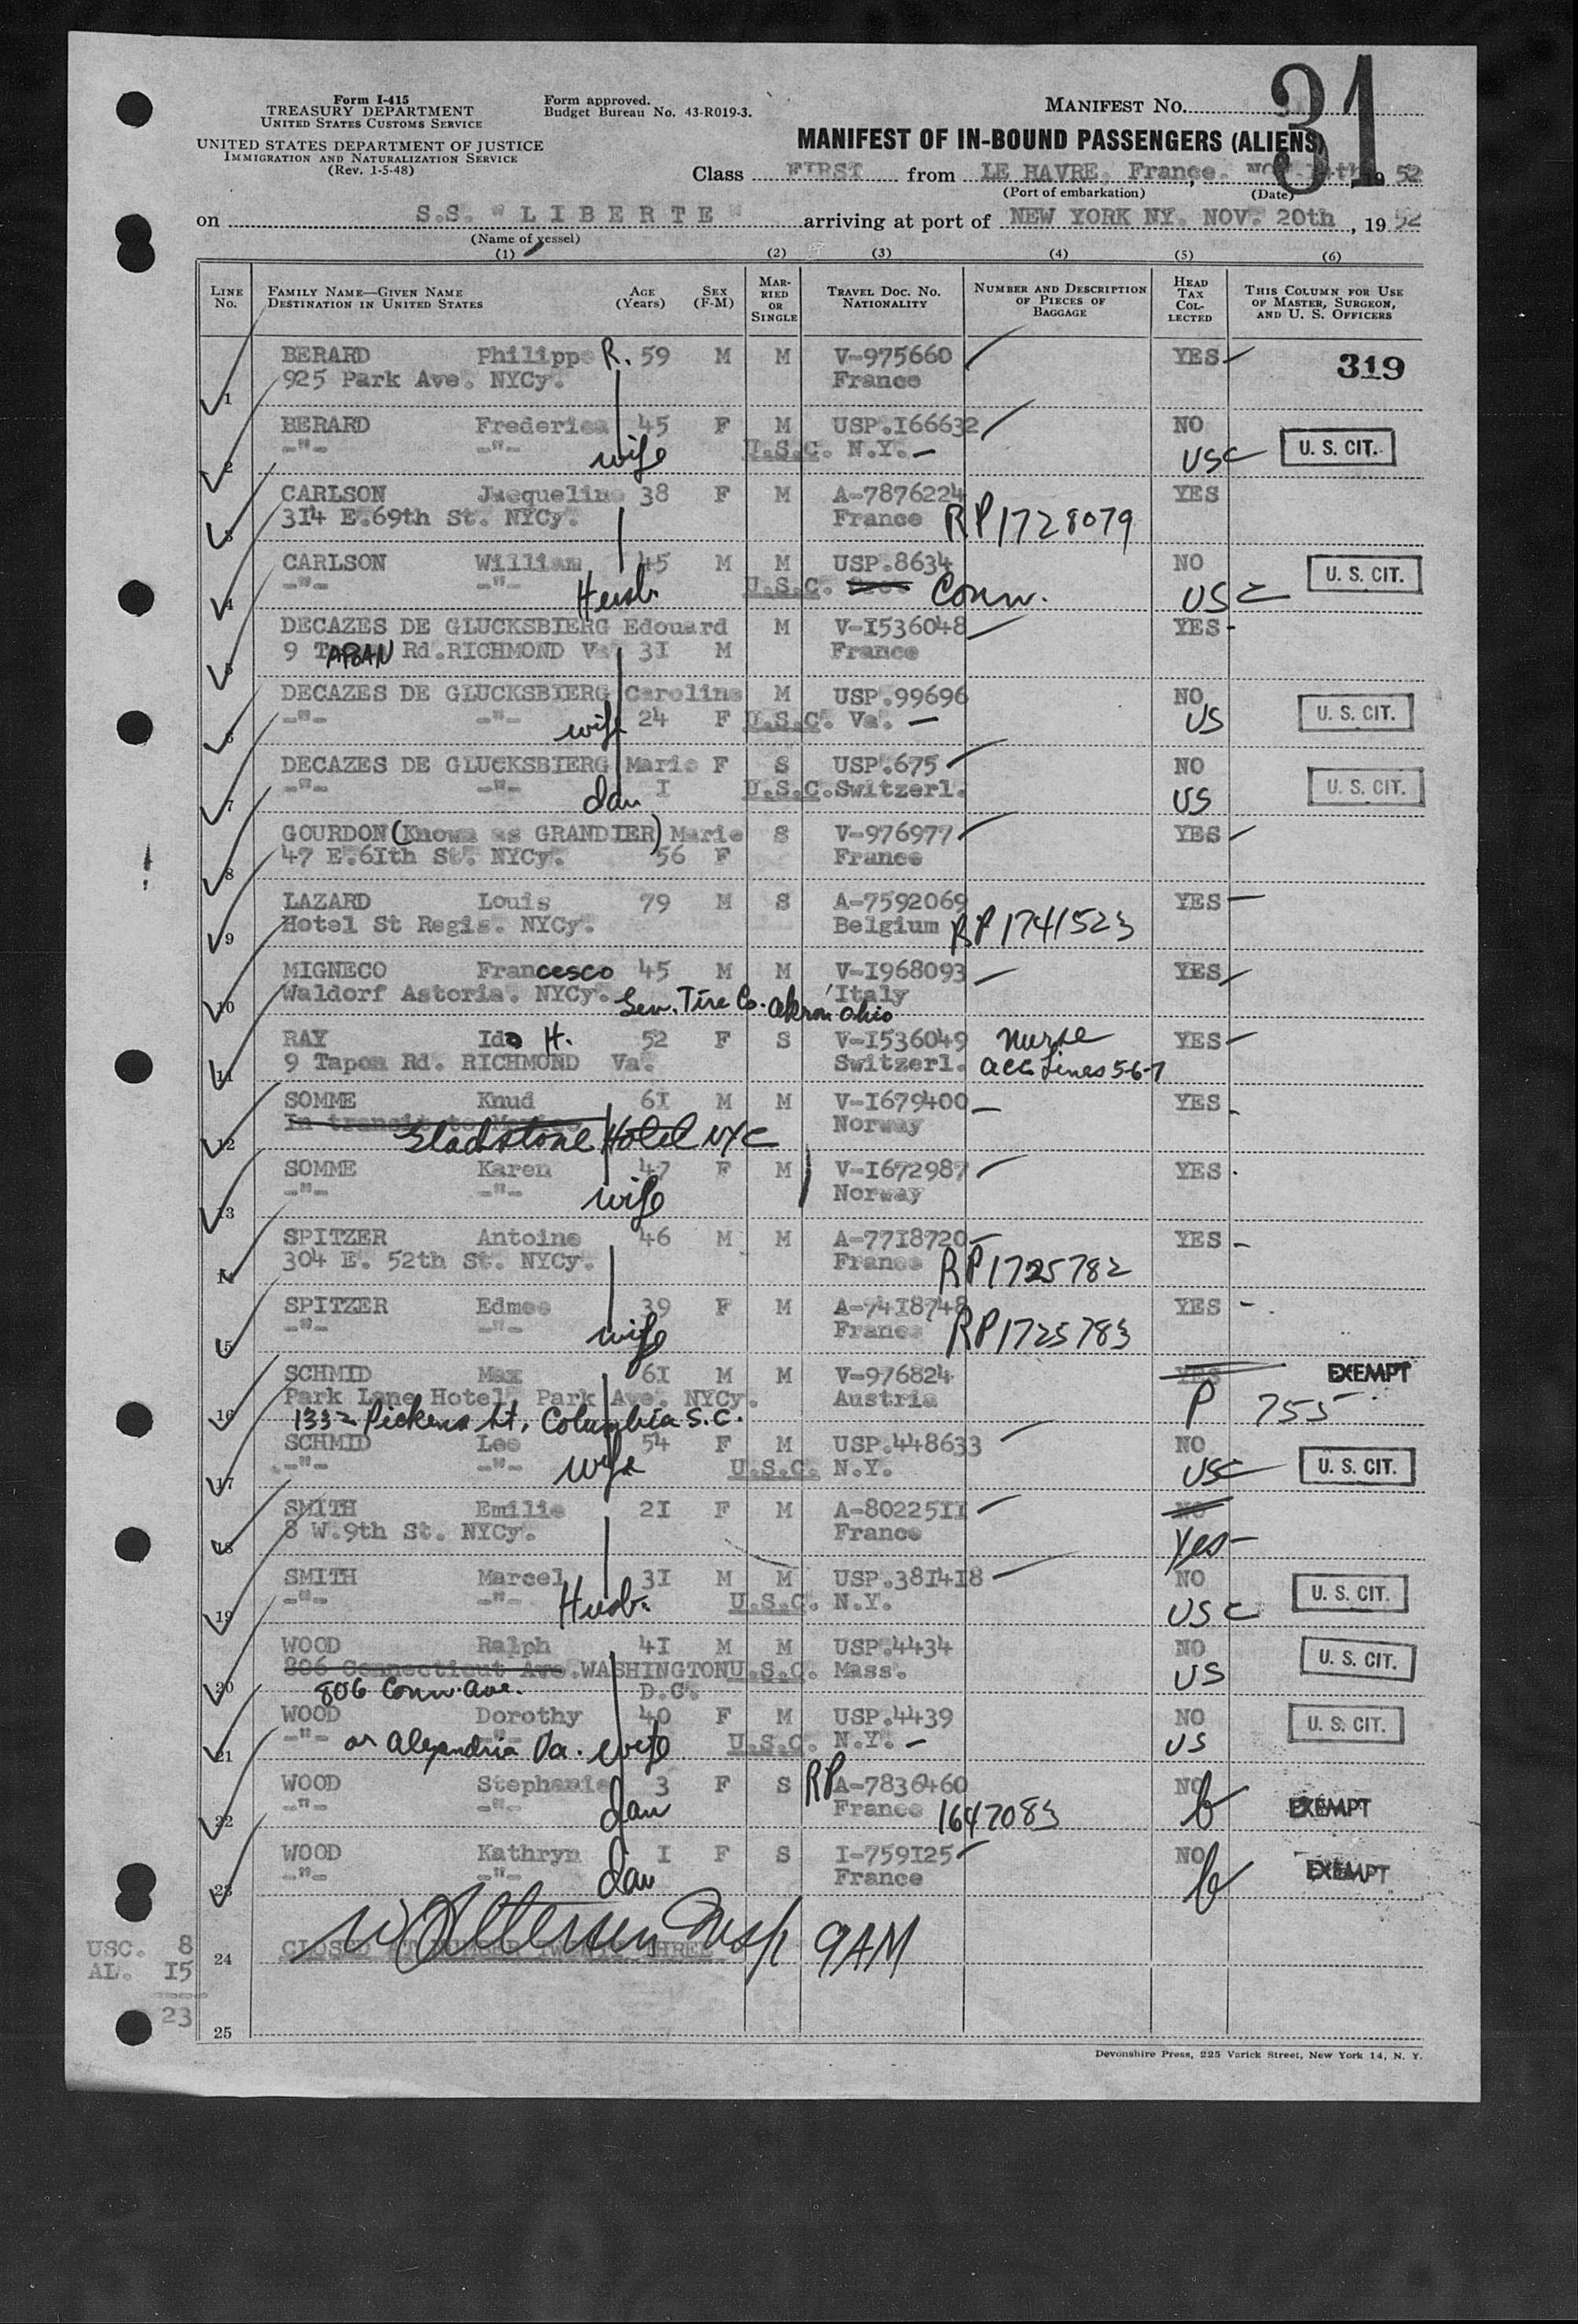 Form I-415
TREASURY DEPARTMENT
UNITED STATES CUSTOMS SERVICE
UNITED STATES DEPARTMENT OF JUSTICE
IMMIGRATION AND NATURALIZATION SERVICE
(Rev. 1-5-48)
Form approved.
Budget Bureau No. 43-R019-3.
MANIFEST NO. 31
MANIFEST OF IN-BOUND PASSENGERS (ALIENS)
Class FIRST from LE HAVRE, France. 1952
(Port of embarkation) (Date)
on S.S. "LIBERTE" arriving at port of NEW YORK NY. NOV. 20th, 1952
(Name of vessel)
(1) (2) (3) (4) (5) (6)
LINE NO. FAMILY NAME—GIVEN NAME DESTINATION IN UNITED STATES AGE (Years) SEX (F-M) MARRIED OR SINGLE TRAVEL DOC. NO. NATIONALITY NUMBER AND DESCRIPTION OF PIECES OF BAGGAGE HEAD TAX COLLECTED THIS COLUMN FOR USE OF MASTER, SURGEON, AND U. S. OFFICERS
BERARD Philippe R. 59 M M V-975660 YES 319
1 925 Park Ave. NYCy. France
BERARD Frederica 45 F M USP.I66632 NO
2 -"- -"- wife U.S.C. N.Y. USC U. S. CIT.
CARLSON Jacqueline 38 F M A-7876224 YES
3 314 E.69th St. NYCy. France RP1728079
CARLSON William 45 M M USP.8634 NO
4 -"- -"- Husb. U.S.C. Conn. USC U. S. CIT.
DECAZES DE GLUCKSBIERG Edouard M V-I536048 YES
5 9 TAPOAN Rd.RICHMOND Va 3I M France
DECAZES DE GLUCKSBIERG Caroline M USP.99696 NO
6 -"- -"- wife 24 F U.S.C. Va. US U. S. CIT.
DECAZES DE GLUCKSBIERG Marie F S USP.675 NO
7 -"- -"- dau I U.S.C.Switzerl. US U. S. CIT.
GOURDON (Known as GRANDIER) Marie S V-976977 YES
8 47 E.6Ith St. NYCy. 56 F France
LAZARD Louis 79 M S A-7592069 YES
9 Hotel St Regis. NYCy. Belgium RP1741523
MIGNECO Francesco 45 M M V-I968093 YES
10 Waldorf Astoria. NYCy. Gen. Tire Co. Akron Ohio Italy
RAY Ida H. 52 F S V-I536049 Nurse YES
11 9 Tapom Rd. RICHMOND Va. Switzerl. acc Lines 5-6-7
SOMME Knud 6I M M V-I679400 YES
In transit to
12 Gladstone Hotel NYC Norway
SOMME Karen 47 F M V-I672987 YES
13 -"- -"- wife Norway
SPITZER Antoine 46 M M A-77I8720 YES
14 304 E. 52th St. NYCy. France RP1725782
SPITZER Edmee 39 F M A-74I8748 YES
15 -"- -"- wife France RP1725783
SCHMID Max 6I M M V-976824 YES EXEMPT
Park Lane Hotel Park Ave. NYCy. Austria
16 1332 Pickens St, Columbia S.C. P 755
SCHMID Lee 54 F M USP.448633 NO
17 -"- -"- wife U.S.C. N.Y. USC U. S. CIT.
SMITH Emilie 2I F M A-80225II NO
18 8 W.9th St. NYCy. France Yes
SMITH Marcel 3I M M USP.38I4I8 NO
19 -"- -"- Husb. U.S.C. N.Y. USC U. S. CIT.
WOOD Ralph 4I M M USP.4434 NO
806 Connecticut Ave.WASHINGTON U.S.C. Mass. US U. S. CIT.
20 806 Conn. Ave. D.C.
WOOD Dorothy 40 F M USP.4439 NO
21 -"- or Alexandria Va. wife U.S.C. N.Y. US U. S. CIT.
WOOD Stephanie 3 F S RP A-7836460 NO
22 -"- -"- dau France 1647083 b EXEMPT
WOOD Kathryn I F S I-759I25 NO
23 -"- -"- dau France b EXEMPT
24 CLOSED AT NUMBER TWENTY THREE Insp 9AM
USC. 8
AL. I5
23
25
Devonshire Press, 225 Varick Street, New York 14, N. Y.